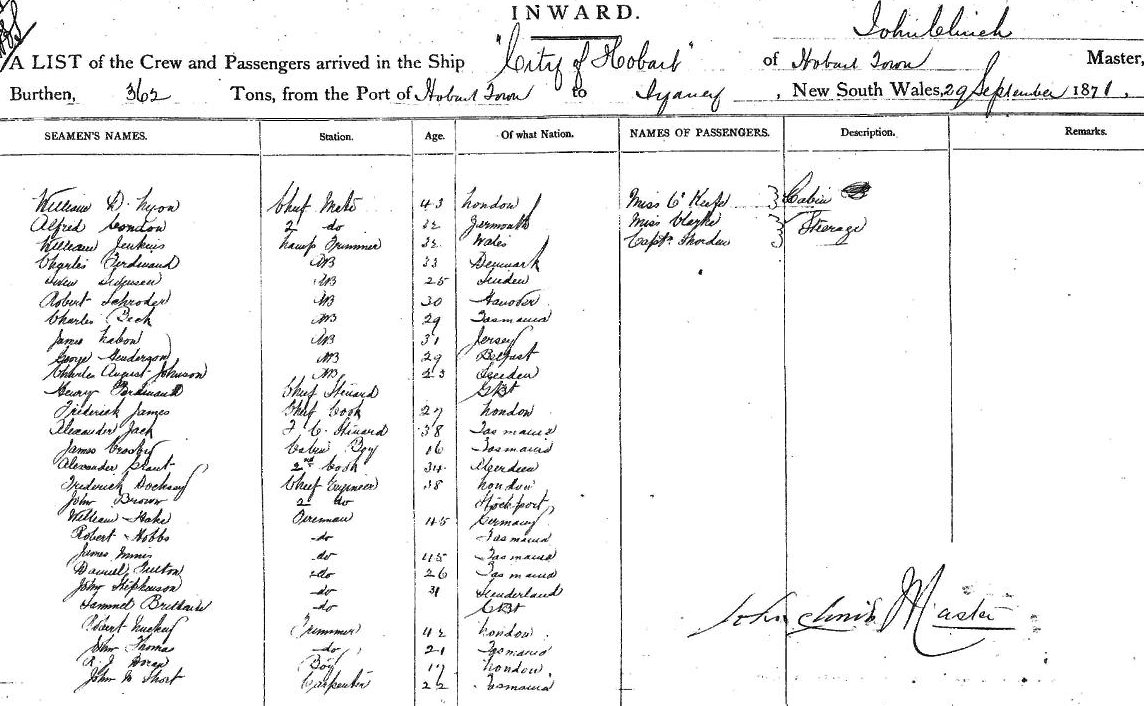 INWARD.
John Clinch
A LIST of the Crew and Passengers arrived in the Ship "City of Hobart" of Hobart Town Master,
Burthen, 362 Tons, from the Port of Hobart Town to Sydney, New South Wales, 29 September 1871.
SEAMEN'S NAMES. Station. Age. Of what Nation. NAMES OF PASSENGERS. Description. Remarks.
William D. Lyon Chief Mate 43 London Miss O'Keefe Cabin
Alfred London 2 do 32 Yarmouth Miss Clarke Steerage
William Jenkins Lamp Trimmer 32 Wales Captn
Charles Ferdinand AB 33 Denmark
AB 25 Sweden
Robert Schroder AB 30 Hanover
Charles AB 29 Tasmania
James AB 31 Jersey
George Henderson AB 29 Belfast
Charles August Johnson AB 23 Sweden
Henry Ferdinand Chief Steward
Frederick James Chief Cook 27 London
Alexander Jack F C. Steward 38 Tasmania
James Crosby Cabin Boy 16 Tasmania
Alexander Grant 2nd Cook 34 Aberdeen
Frederick Chief Engineer 38 London
John Brown 2 do Stockport
William Hake Fireman 45 Germany
Robert Hobbs do Tasmania
James do 45 Tasmania
Daniel do 26 Tasmania
John Stephenson do 31 Sunderland
Samuel do
Robert Trimmer 42 London
John Thomas do 21 Tasmania
R. J. Boy 17 London
John W Short Carpenter 22 Tasmania
John Clinch Master